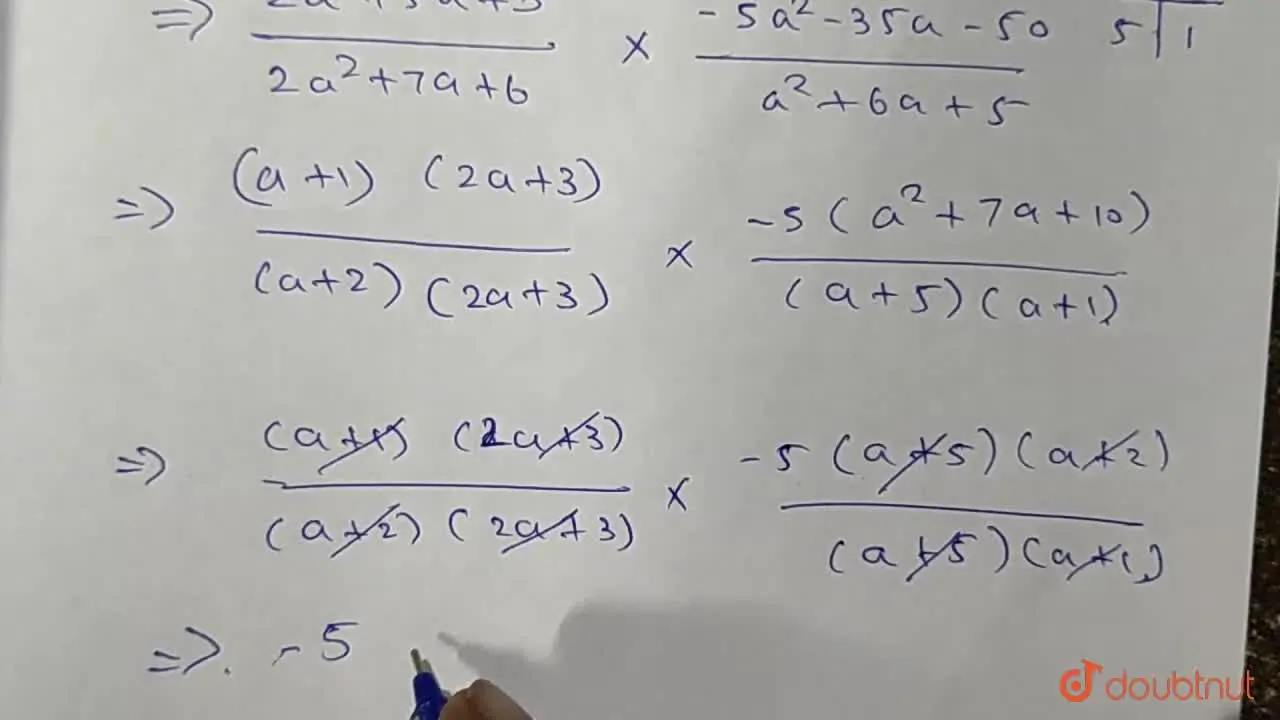 => 2a²+5a+3 / 2a²+7a+6 × -5a²-35a-50 / a²+6a+5 5|1
=> (a+1) (2a+3) / (a+2) (2a+3) × -5(a²+7a+10) / (a+5)(a+1)
=> (a+1) (2a+3) / (a+2) (2a+3) × -5(a+5)(a+2) / (a+5)(a+1)
=>. -5
doubtnut